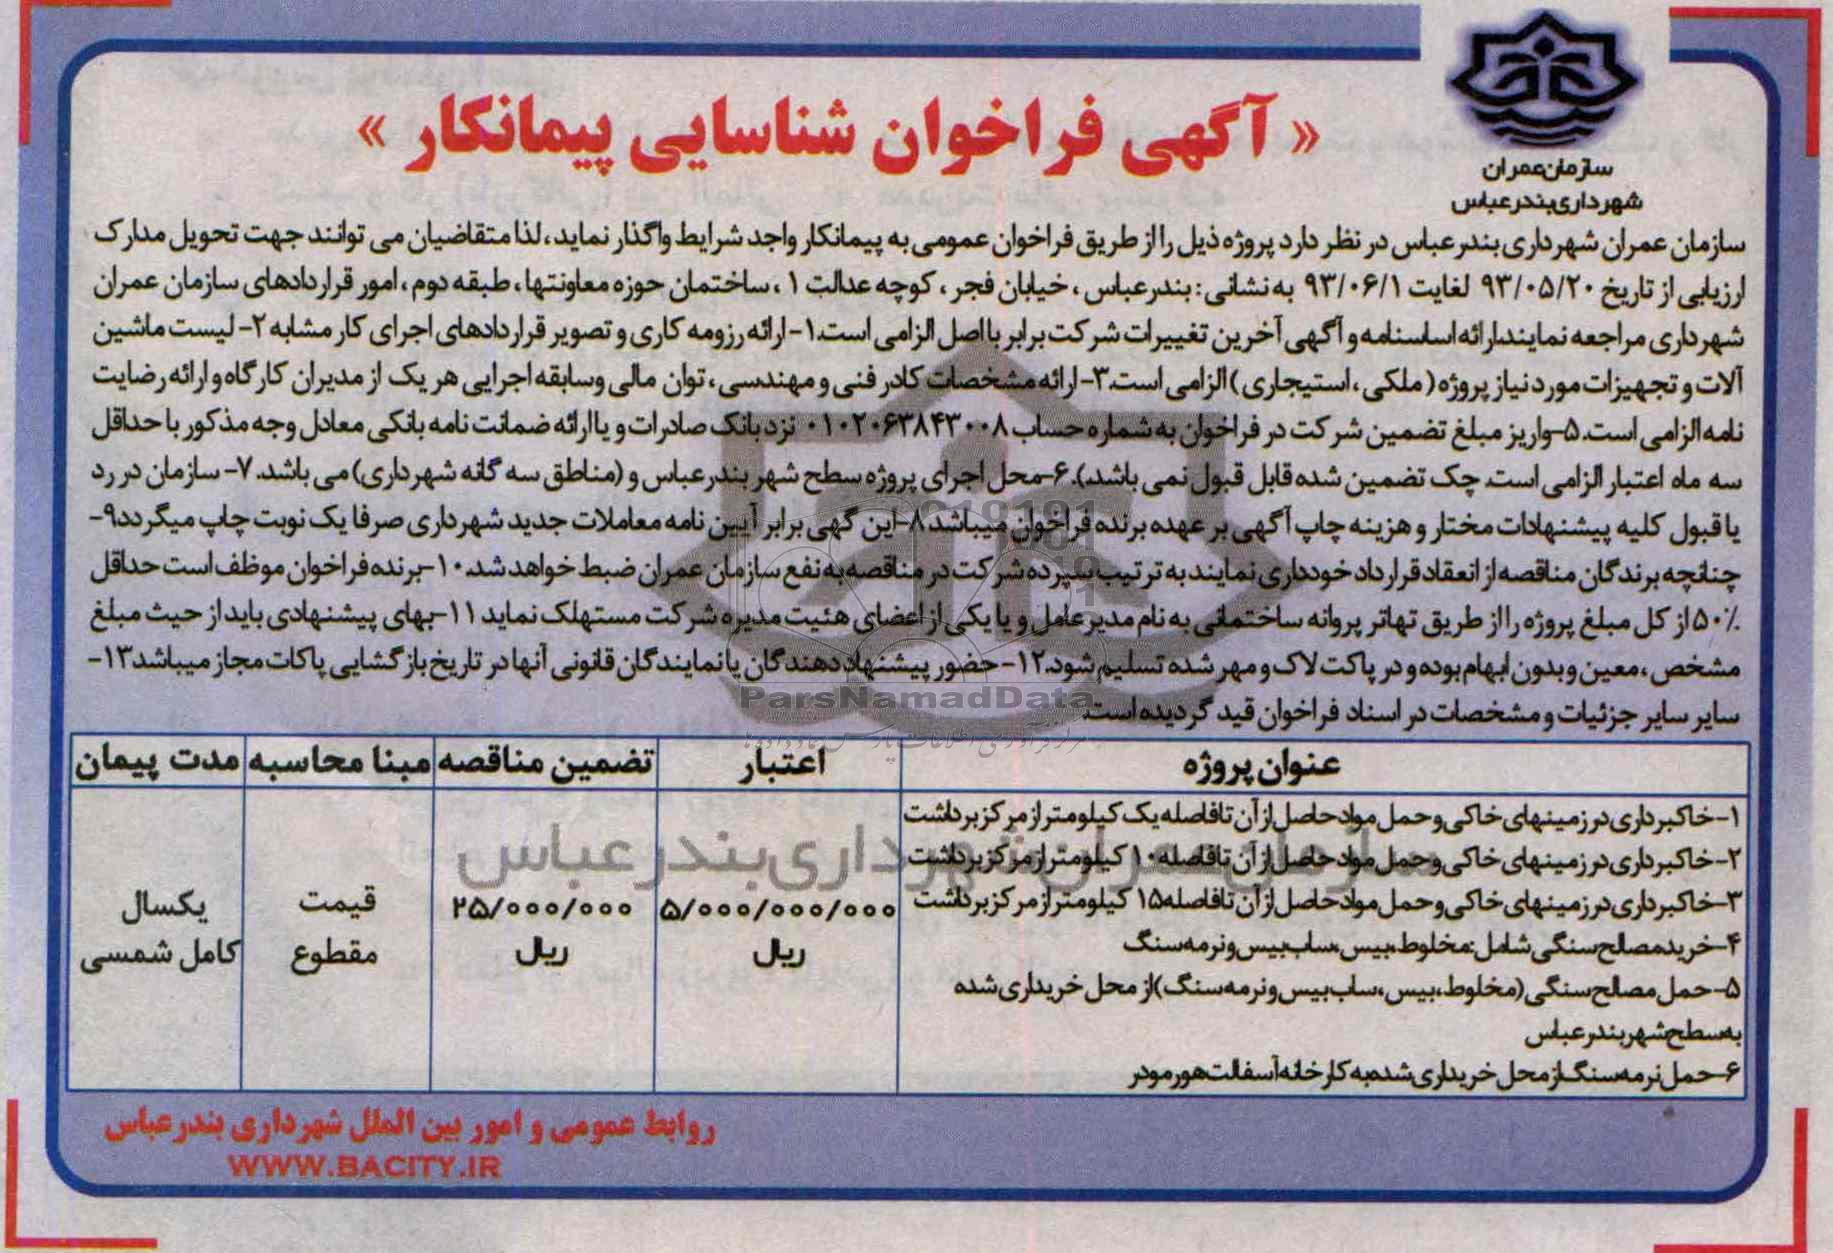 سازمان عمران
شهرداری بندرعباس
« آگهی فراخوان شناسایی پیمانکار »
سازمان عمران شهرداری بندرعباس در نظر دارد پروژه ذیل را از طریق فراخوان عمومی به پیمانکار واجد شرایط واگذار نماید، لذا متقاضیان می توانند جهت تحویل مدارک
ارزیابی از تاریخ ۹۳/۰۵/۲۰ لغایت ۹۳/۰۶/۱ به نشانی : بندرعباس ، خیابان فجر ، کوچه عدالت ۱ ، ساختمان حوزه معاونتها ، طبقه دوم ، امور قراردادهای سازمان عمران
شهرداری مراجعه نمایند.ارائه اساسنامه و آگهی آخرین تغییرات شرکت برابر با اصل الزامی است.۱- ارائه رزومه کاری و تصویر قراردادهای اجرای کار مشابه ۲- لیست ماشین
آلات و تجهیزات مورد نیاز پروژه ( ملکی ، استیجاری ) الزامی است.۳- ارائه مشخصات کادر فنی و مهندسی ، توان مالی وسابقه اجرایی هر یک از مدیران کارگاه و ارائه رضایت
نامه الزامی است. ۵-واریز مبلغ تضمین شرکت در فراخوان به شماره حساب ۰۱۰۲۰۶۳۸۴۳۰۰۸ نزد بانک صادرات و یا ارائه ضمانت نامه بانکی معادل وجه مذکور با حداقل
سه ماه اعتبار الزامی است. چک تضمین شده قابل قبول نمی باشد.). ۶-محل اجرای پروژه سطح شهر بندرعباس و (مناطق سه گانه شهرداری) می باشد. ۷- سازمان در رد
یا قبول کلیه پیشنهادات مختار و هزینه چاپ آگهی بر عهده برنده فراخوان میباشد ۸-این گهی برابر آیین نامه معاملات جدید شهرداری صرفا یک نوبت چاپ میگردد۹-
چنانچه برندگان مناقصه از انعقاد قرارداد خودداری نمایند به ترتیب سپرده شرکت در مناقصه به نفع سازمان عمران ضبط خواهد شد. ۱۰-برنده فراخوان موظف است حداقل
۵۰٪ از کل مبلغ پروژه را از طریق تهاتر پروانه ساختمانی به نام مدیرعامل و یا یکی از اعضای هئیت مدیره شرکت مستهلک نماید ۱۱-بهای پیشنهادی باید از حیث مبلغ
مشخص ، معین و بدون ابهام بوده و در پاکت لاک و مهر شده تسلیم شود.۱۲- حضور پیشنهاد دهندگان یا نمایندگان قانونی آنها در تاریخ بازگشایی پاکات مجاز میباشد ۱۳-
سایر سایر جزئیات و مشخصات در اسناد فراخوان قید گردیده است.
ParsNamadData
عنوان پروژه | اعتبار | تضمین مناقصه | مبنا محاسبه | مدت پیمان
۱-خاکبرداری در زمینهای خاکی و حمل مواد حاصل از آن تا فاصله یک کیلومتر از مرکز برداشت
۲-خاکبرداری در زمینهای خاکی و حمل مواد حاصل از آن تا فاصله ۱۰ کیلومتر از مرکز برداشت
۳-خاکبرداری در زمینهای خاکی و حمل مواد حاصل از آن تا فاصله ۱۵ کیلومتر از مرکز برداشت
۴-خرید مصالح سنگی شامل: مخلوط، بیس، ساب بیس و نرمه سنگ
۵-حمل مصالح سنگی (مخلوط، بیس، ساب بیس و نرمه سنگ) از محل خریداری شده
به سطح شهر بندرعباس
۶-حمل نرمه سنگ از محل خریداری شده به کارخانه آسفالت هورمودر
۵/۰۰۰/۰۰۰/۰۰۰
ریال
۲۵/۰۰۰/۰۰۰
ریال
قیمت
مقطوع
یکسال
کامل شمسی
سازمان عمران شهرداری بندرعباس
روابط عمومی و امور بین الملل شهرداری بندرعباس
WWW.BACITY.IR